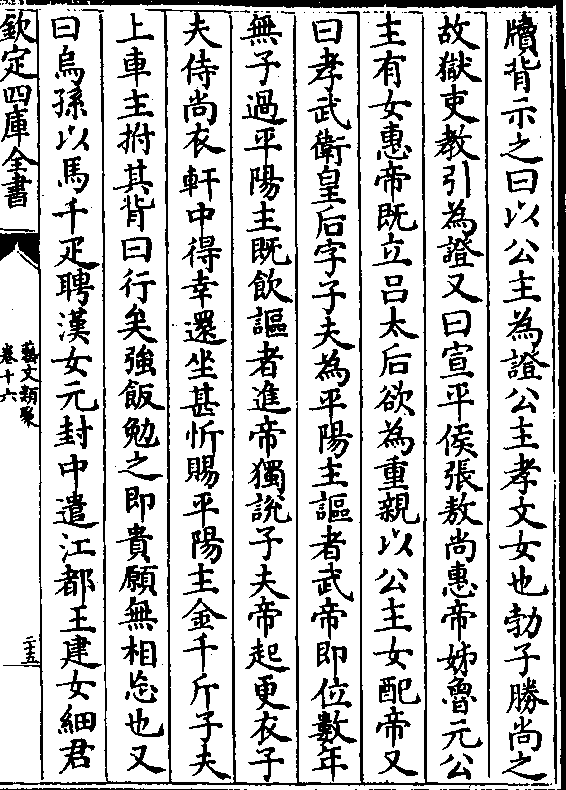 牘背示之曰以公主為證公主孝文女也勃子勝尚之
故獄吏教引為證又曰宣平侯張敖尚惠帝姊魯元公
主有女惠帝既立吕太后欲為重親以公主女配帝又
曰孝武衛皇后字子夫為平陽主謳者武帝即位數年
無子過平陽主既飲謳者進帝獨說子夫帝起更衣子
夫侍尚衣軒中得幸還坐甚忻賜平陽主金千斤子夫
上車主拊其背曰行矣強飯勉之即貴願無相忘也又
曰烏孫以馬千疋聘漢女元封中遣江都王建女細君
欽定四庫全書
藝文類聚
卷十六
二十五